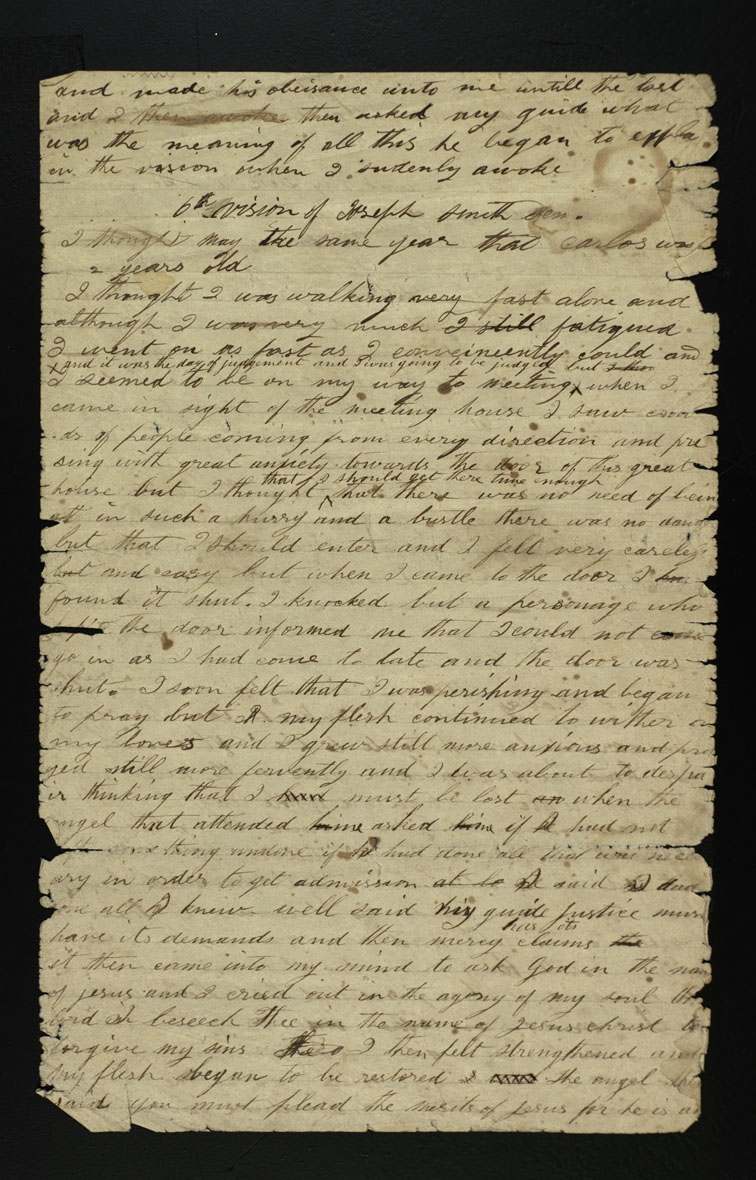 and made his obeisance unto me untill the last
and I then awoke then asked my guide what
was the meaning of all this he began to expla
in the vision when I sudenly awoke
6th vision of Joseph Smith sen.
I thought may the same year that carlos was
2 years old
I thought I was walking very fast alone and
although I was very much I still fatigued
I went on as fast as I conveineently could and
and it was the day of judgement and I was going to be judged but I
I seemed to be on my way to meeting when I
came in sight of the meeting house I saw crow
ds of people coming from every direction and pre
sing with great anxiety towards the door of this great
that I should get there time enough
house but I thought that there was no need of bein
in such a hurry and a bustle there was no
but that I should enter and I felt very careless
but and easy but when I came to the door I
found it shut. I knocked but a personage who
the door informed me that I could not come
go in as I had come to late and the door was
shut. I soon felt that I was perishing and began
to pray but my flesh continued to wither
my and I grew still more anxious and pra
yed still more fervently and I was about to despa
ir thinking that I must be lost when the
angel that attended hime asked hime if I had not
something undone if I had done all that was
ary in order to get admission at I said I
one all I knew well said my guide justice must
has its
have its demands and then mercy claims the
it then came into my mind to ask God in the
of jesus and I cried out in the agony of my soul
Lord I beseech Thee in the name of Jesus christ to
forgive my sins I then felt strengthened and
My flesh began to be restored the angel
said you must plead the merits of jesus for he is